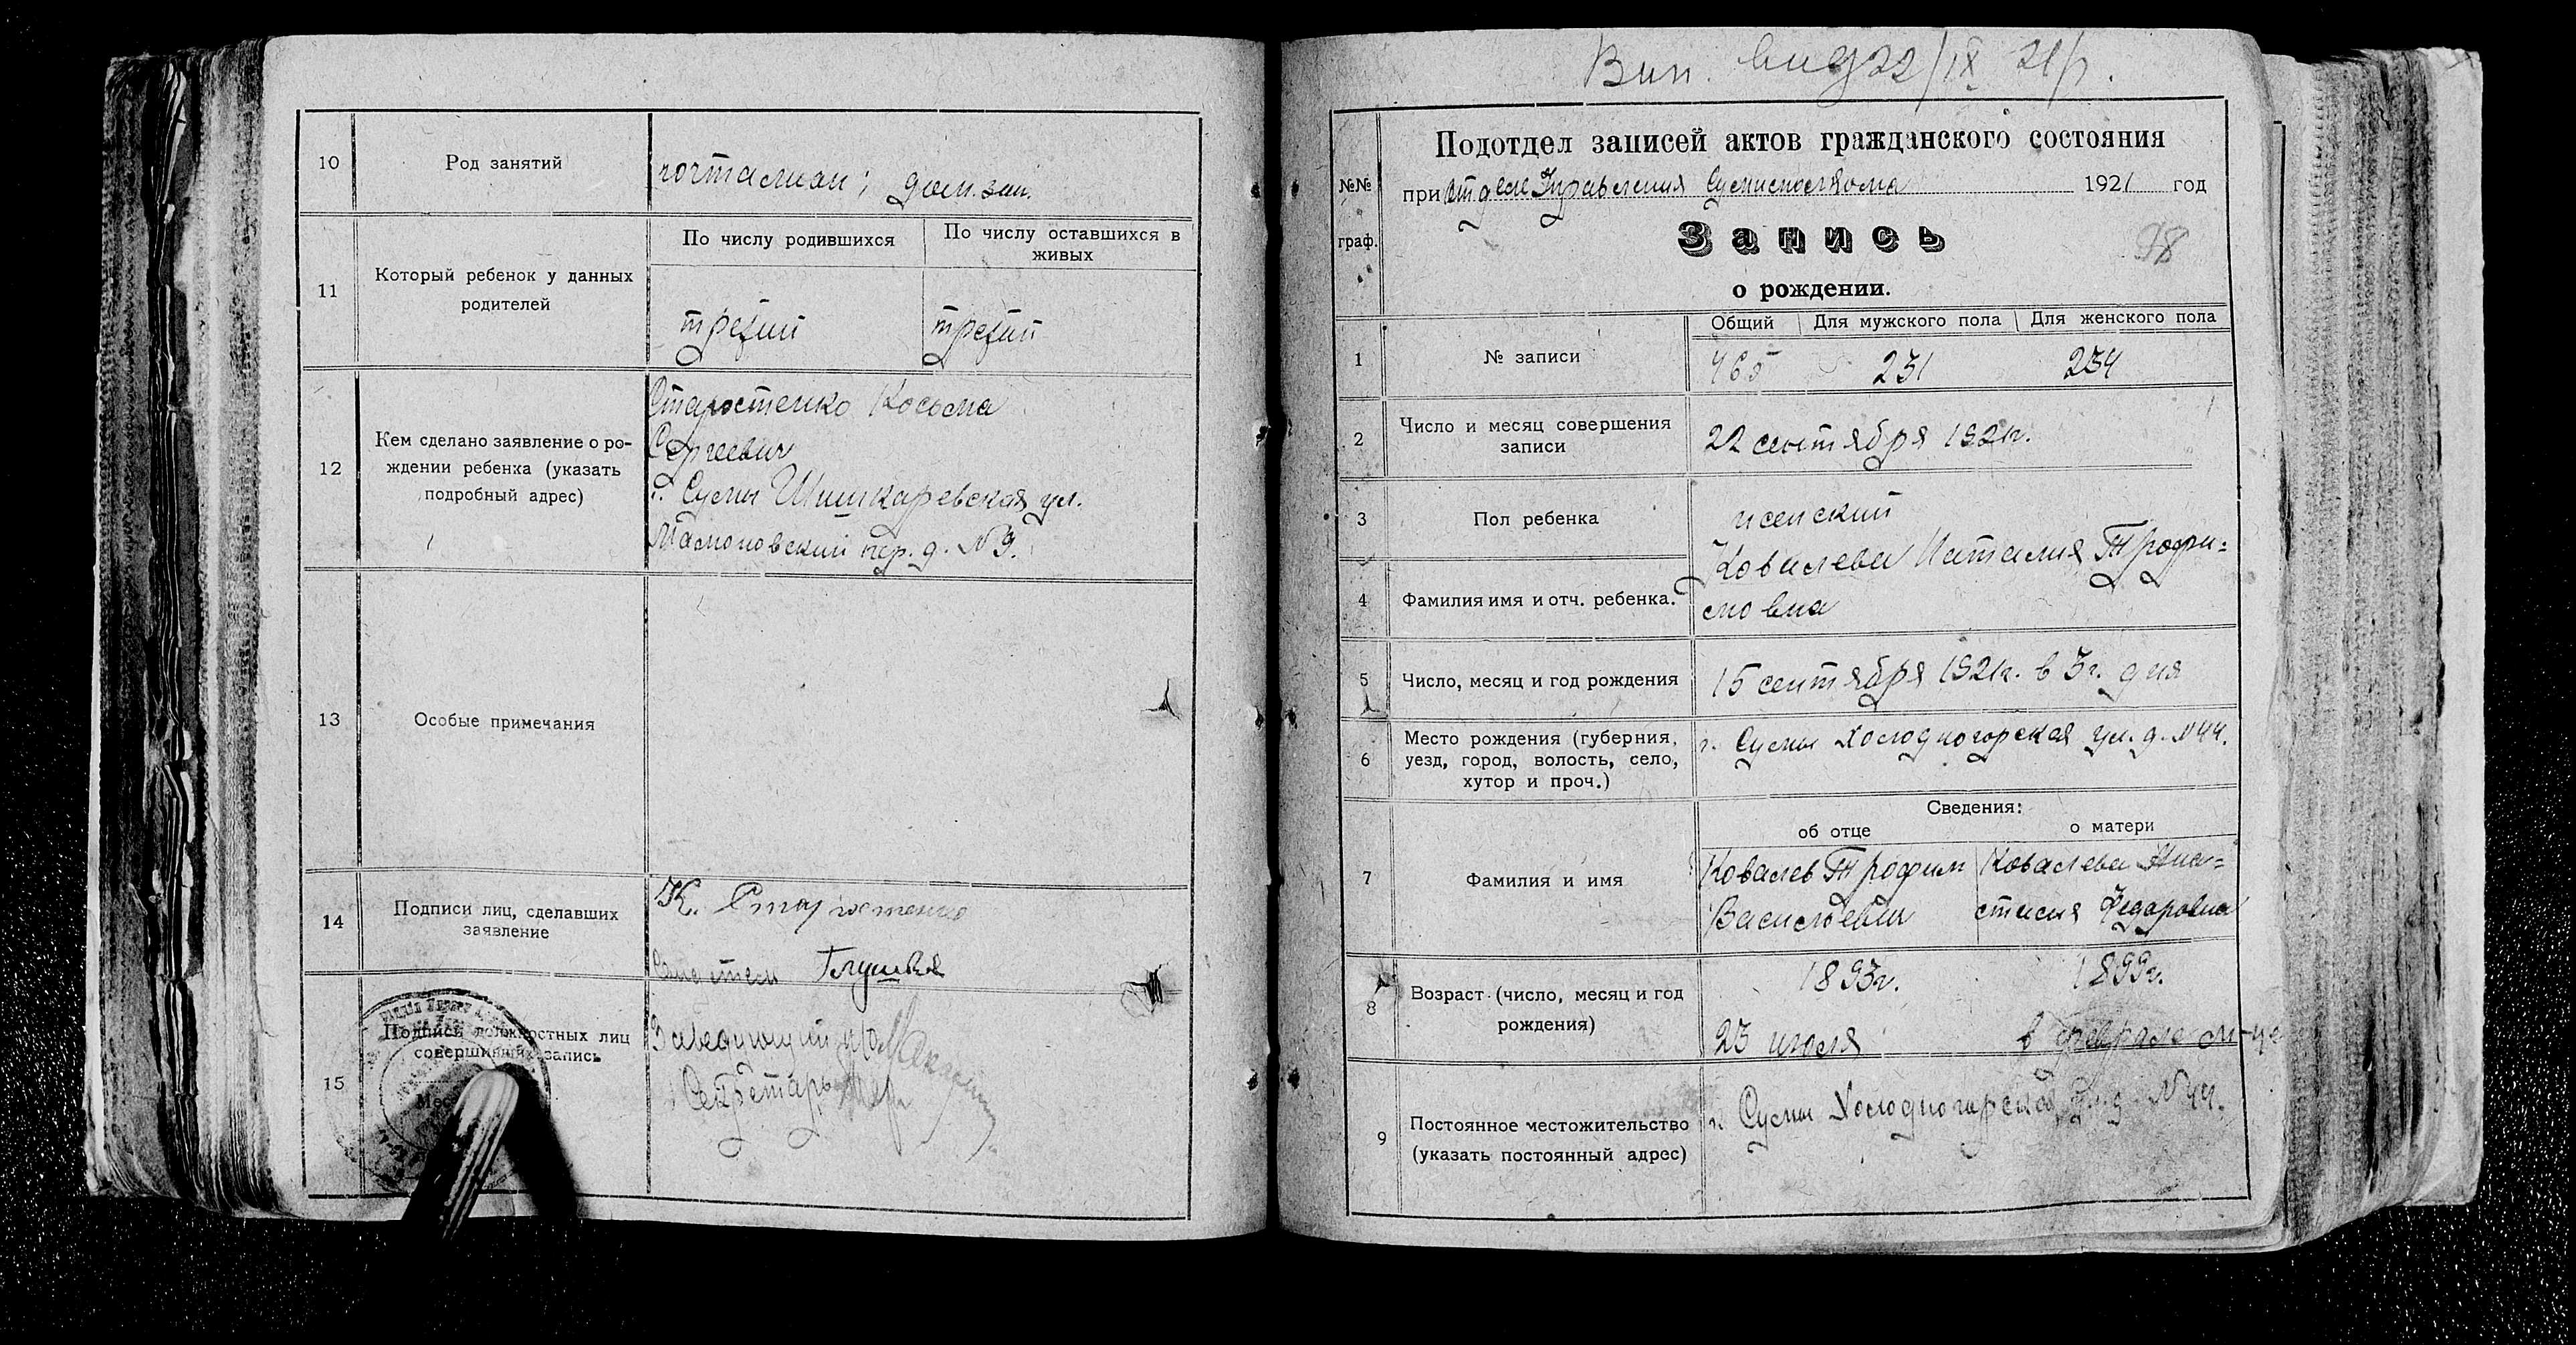 10 Род занятий почталион; дом. зан.
11 Который ребенок у данных родителей
По числу родившихся
По числу оставшихся в живых
третий третий
12 Кем сделано заявление о ро-
ждении ребенка (указать
подробный адрес)
Старостенко Косьма
Сергеевич
г. Сумы Шишкаревская ул.
Мамоновский пер. д. N 9.
13 Особые примечания
14 Подписи лиц, сделавших
заявление
К. Старостенко
15 Подписи должностных лиц
совершивших запись
Заведующий
Секретарь
Вип. вид 22/IX 21 р.
№№
граф.
Подотдел записей актов гражданского состояния
при отделе Управления 1921 год
Запись
98
о рождении.
Общий Для мужского пола Для женского пола
1 № записи 465 231 234
2 Число и месяц совершения
записи
22 сентября 1921г.
3 Пол ребенка женский
4 Фамилия имя и отч. ребенка.
Ковалева Наталия Трофи=
мовна
5 Число, месяц и год рождения 15 сентября 1921г. в 3 г. дня
6 Место рождения (губерния,
уезд, город, волость, село,
хутор и проч.)
г. Сумы Холодногорская ул. д. N 44.
Сведения:
об отце о матери
7 Фамилия и имя
Ковалев Трофим
Васильевич
Ковалева Ана=
стасия Федаровна
8 Возраст (число, месяц и год
рождения)
1893г.
23 июля
1899г.
в феврале м-це
9 Постоянное местожительство
(указать постоянный адрес)
г. Сумы Холодногорская ул. д. N 44.